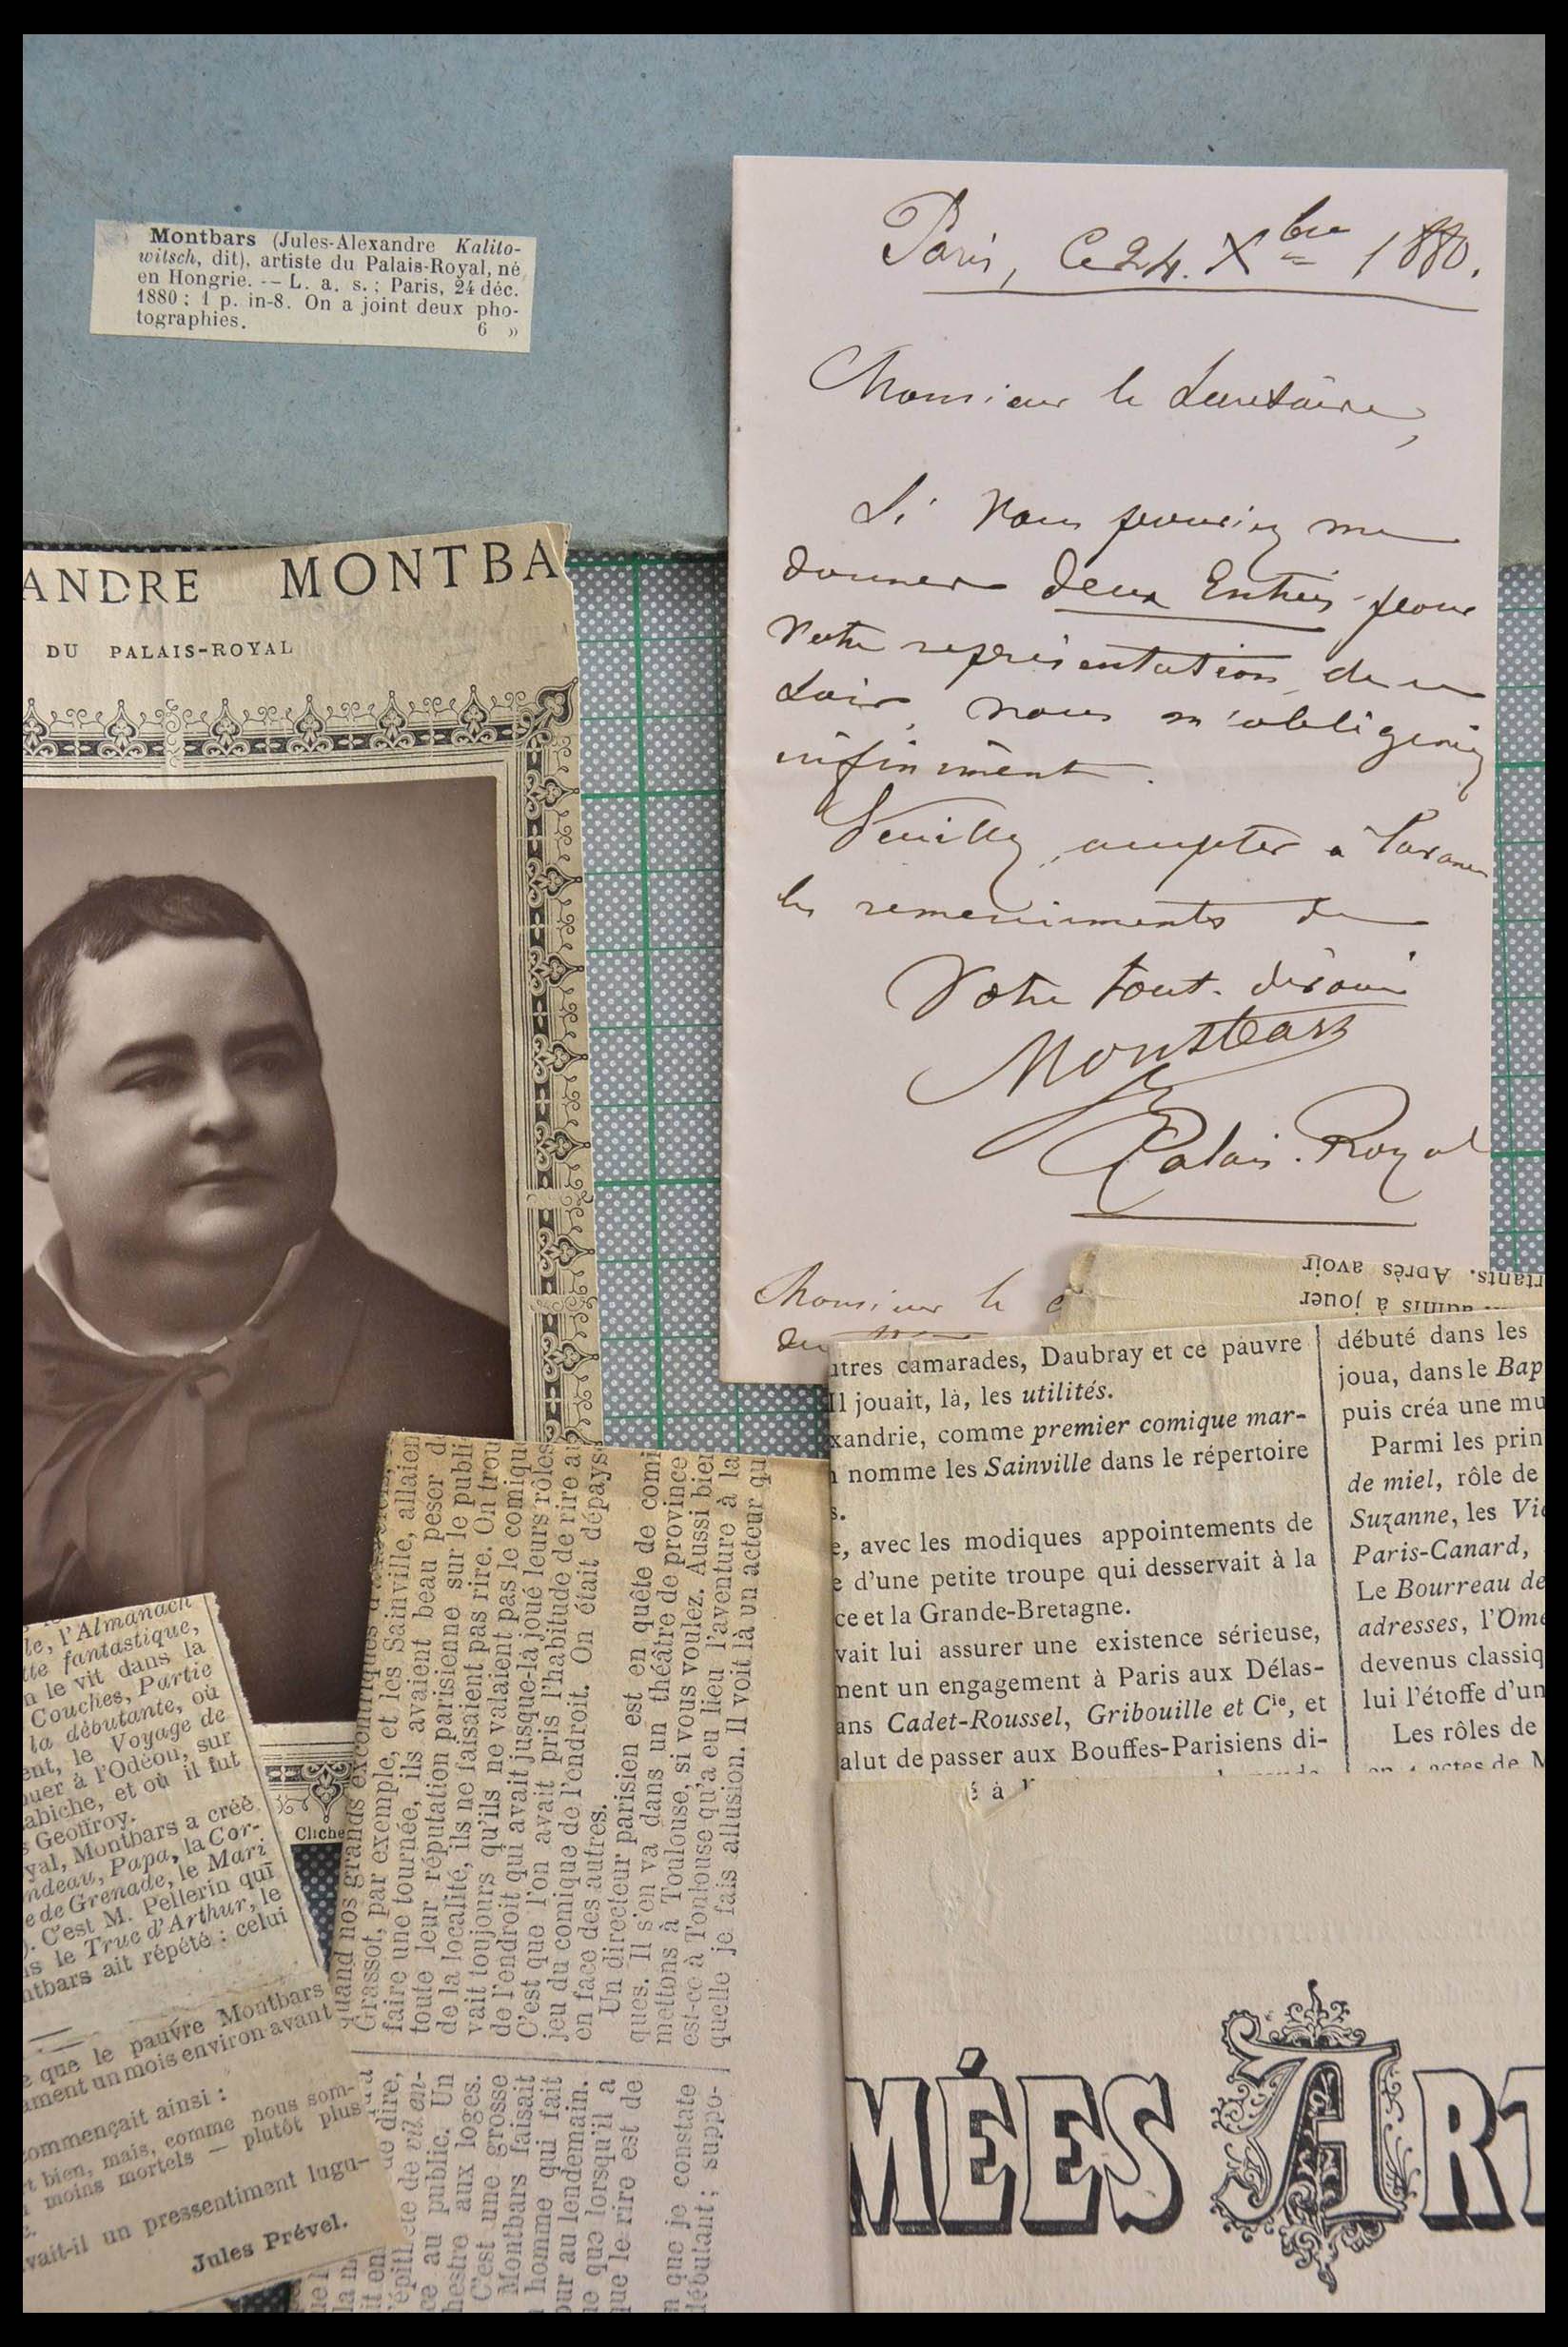 Montbars (Jules-Alexandre Kalito-
witsch, dit), artiste du Palais-Royal, né
en Hongrie. -- L. a. s. ; Paris, 24 déc.
1880 ; 1 p. in-8. On a joint deux pho-
tographies. 6 »
Paris, Ce 24. Xbre 1880.
Monsieur le Secrétaire,
Si vous pouviez me
donner deux Entrées pour
votre représentation de ce
soir, vous m'obligeriez
infiniment.
Veuillez accepter à l'avance
les remerciments de
Votre tout dévoué
Montbars
Palais-Royal
Monsieur le
du
ANDRE MONTBA
DU PALAIS-ROYAL
Cliché
rtants. Après avoir
admis à jouer
utres camarades, Daubray et ce pauvre
Il jouait, là, les utilités.
xandrie, comme premier comique mar-
nomme les Sainville dans le répertoire
s.
e, avec les modiques appointements de
e d'une petite troupe qui desservait à la
ce et la Grande-Bretagne.
vait lui assurer une existence sérieuse,
ment un engagement à Paris aux Délas-
ans Cadet-Roussel, Gribouille et Cie, et
alut de passer aux Bouffes-Parisiens di-
é à
débuté dans les
joua, dans le Bap
puis créa une mu
Parmi les prin
de miel, rôle de
Suzanne, les Vi
Paris-Canard,
Le Bourreau de
adresses, l'Ome
devenus classiq
lui l'étoffe d'un
Les rôles de
en 4 actes de M
quand nos grands excentriques
Grassot, par exemple, et les Sainville, allaien
faire une tournée, ils avaient beau peser d
toute leur réputation parisienne sur le publi
de la localité, ils ne faisaient pas rire. On trou
vait toujours qu'ils ne valaient pas le comiqu
de l'endroit qui avait jusque-là joué leurs rôles
C'est que l'on avait pris l'habitude de rire au
jeu du comique de l'endroit. On était dépays
en face des autres.
Un directeur parisien est en quête de comi
ques. Il s'en va dans un théâtre de province
mettons à Toulouse, si vous voulez. Aussi bien
est-ce à Toulouse qu'a eu lieu l'aventure à la
quelle je fais allusion. Il voit là un acteur qu
de dire,
de vil en-
ce au public. Un
hestre aux loges.
C'est une grosse
Montbars faisait
homme qui fait
our au lendemain.
ue que lorsqu'il a
que le rire est de
n que je constate
débutant ; suppo-
le, l'Almanach
tte fantastique,
n le vit dans la
Couches, Partie
la débutante, où
ent, le Voyage de
ouer à l'Odéon, sur
abiche, et où il fut
s Geoffroy.
yal, Montbars a créé
ndeau, Papa, la Cor-
e de Grenade, le Mari
). C'est M. Pellerin qui
is le Truc d'Arthur, le
ntbars ait répété : celui
e que le pauvre Montbars
ament un mois environ avant
commençait ainsi :
rt bien, mais, comme nous som-
moins mortels — plutôt plus
vait-il un pressentiment lugu-
Jules Prével.
MÉES ART